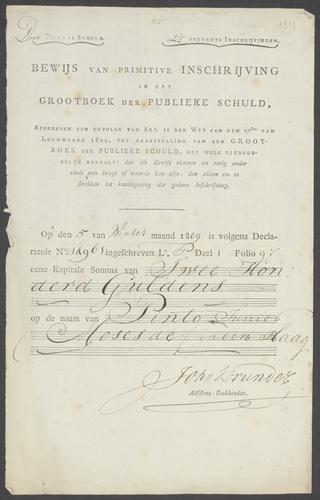 SCHULD. 2½ PERCENTS INSCHRIJVINGEN.
BEWIJS VAN PRIMITIVE INSCHRIJVING
IN HET
GROOTBOEK DER PUBLIEKE SCHULD,
AFGEGEVEN TEN GEVOLGE VAN ART. 12 DER WET VAN DEN VAN
LOUWMAAND 1809, TOT DAARSTELLING VAN EEN GROOT-
BOEK DER PUBLIEKE SCHULD, HET WELK UITDRUK-
KELIJK BEPAALT: dat die Bewijs nimmer tot eenig ander
einde van kragt of waarde kan zijn, dan alleen om te
strekken tot kennisgeving der gedane Inschrijving.
Op den 5e van Winter maand 1809 is volgens Decla-
ratoir No. ingeschreven La. P Deel 1 Folio
eene Kapitale Somma van Twee Hon-
derd Guldens
op de naam van Pinto Junior
Moses de in den Haag
Adsistent Boekhouder.